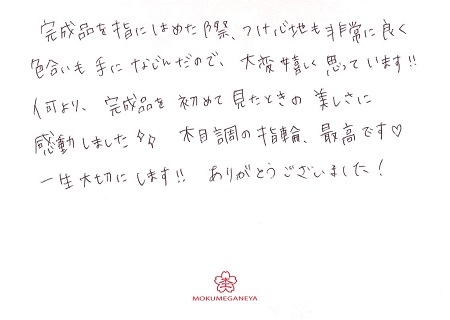 完成品を指にはめた際、つけ心地も非常に良く
色合いも手になじんだので、大変嬉しく思っています!!
何より、完成品を初めて見たときの美しさに
感動しました 木目調の指輪、最高です♡
一生大切にします!! ありがとうございました!
MOKUMEGANEYA